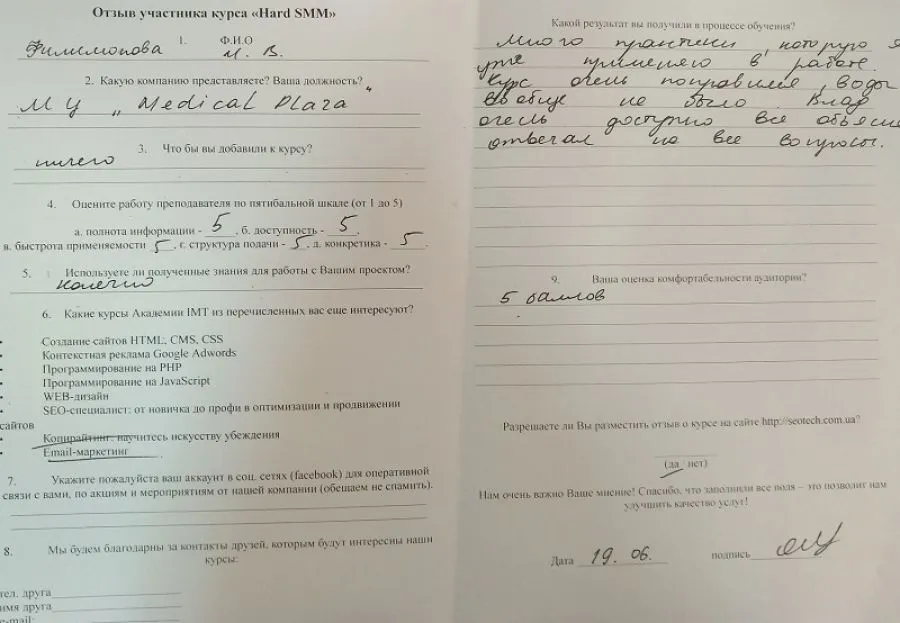 Отзыв участника курса «Hard SMM»
1. Ф.И.О
Филимонова И. В.
2. Какую компанию представляете? Ваша должность?
МЦ „Medical Plaza"
3. Что бы вы добавили к курсу?
ничего
4. Оцените работу преподавателя по пятибальной шкале (от 1 до 5)
а. полнота информации - 5, б. доступность - 5,
в. быстрота применяемости 5, г. структура подачи - 5, д. конкретика - 5.
5. Используете ли полученные знания для работы с Вашим проектом?
конечно
6. Какие курсы Академии IMT из перечисленных вас еще интересуют?
• Создание сайтов HTML, CMS, CSS
• Контекстная реклама Google Adwords
• Программирование на PHP
• Программирование на JavaScript
• WEB-дизайн
• SEO-специалист: от новичка до профи в оптимизации и продвижении
сайтов
• Копирайтинг: научитесь искусству убеждения
• Email-маркетинг
7. Укажите пожалуйста ваш аккаунт в соц. сетях (facebook) для оперативной
связи с вами, по акциям и мероприятиям от нашей компании (обещаем не спамить).
8. Мы будем благодарны за контакты друзей, которым будут интересны наши
курсы:
тел. друга
имя друга
e-mail:
Какой результат вы получили в процессе обучения?
Много практики, которую я
уже применяю в работе.
Курс очень понравился, воды
вообще не было. Влад
очень доступно все объясн
отвечал на все вопросы.
9. Ваша оценка комфортабельности аудитории?
5 баллов
Разрешаете ли Вы разместить отзыв о курсе на сайте http://seotech.com.ua?
(да нет)
Нам очень важно Ваше мнение! Спасибо, что заполнили все поля – это позволит нам
улучшить качество услуг!
Дата 19. 06. подпись